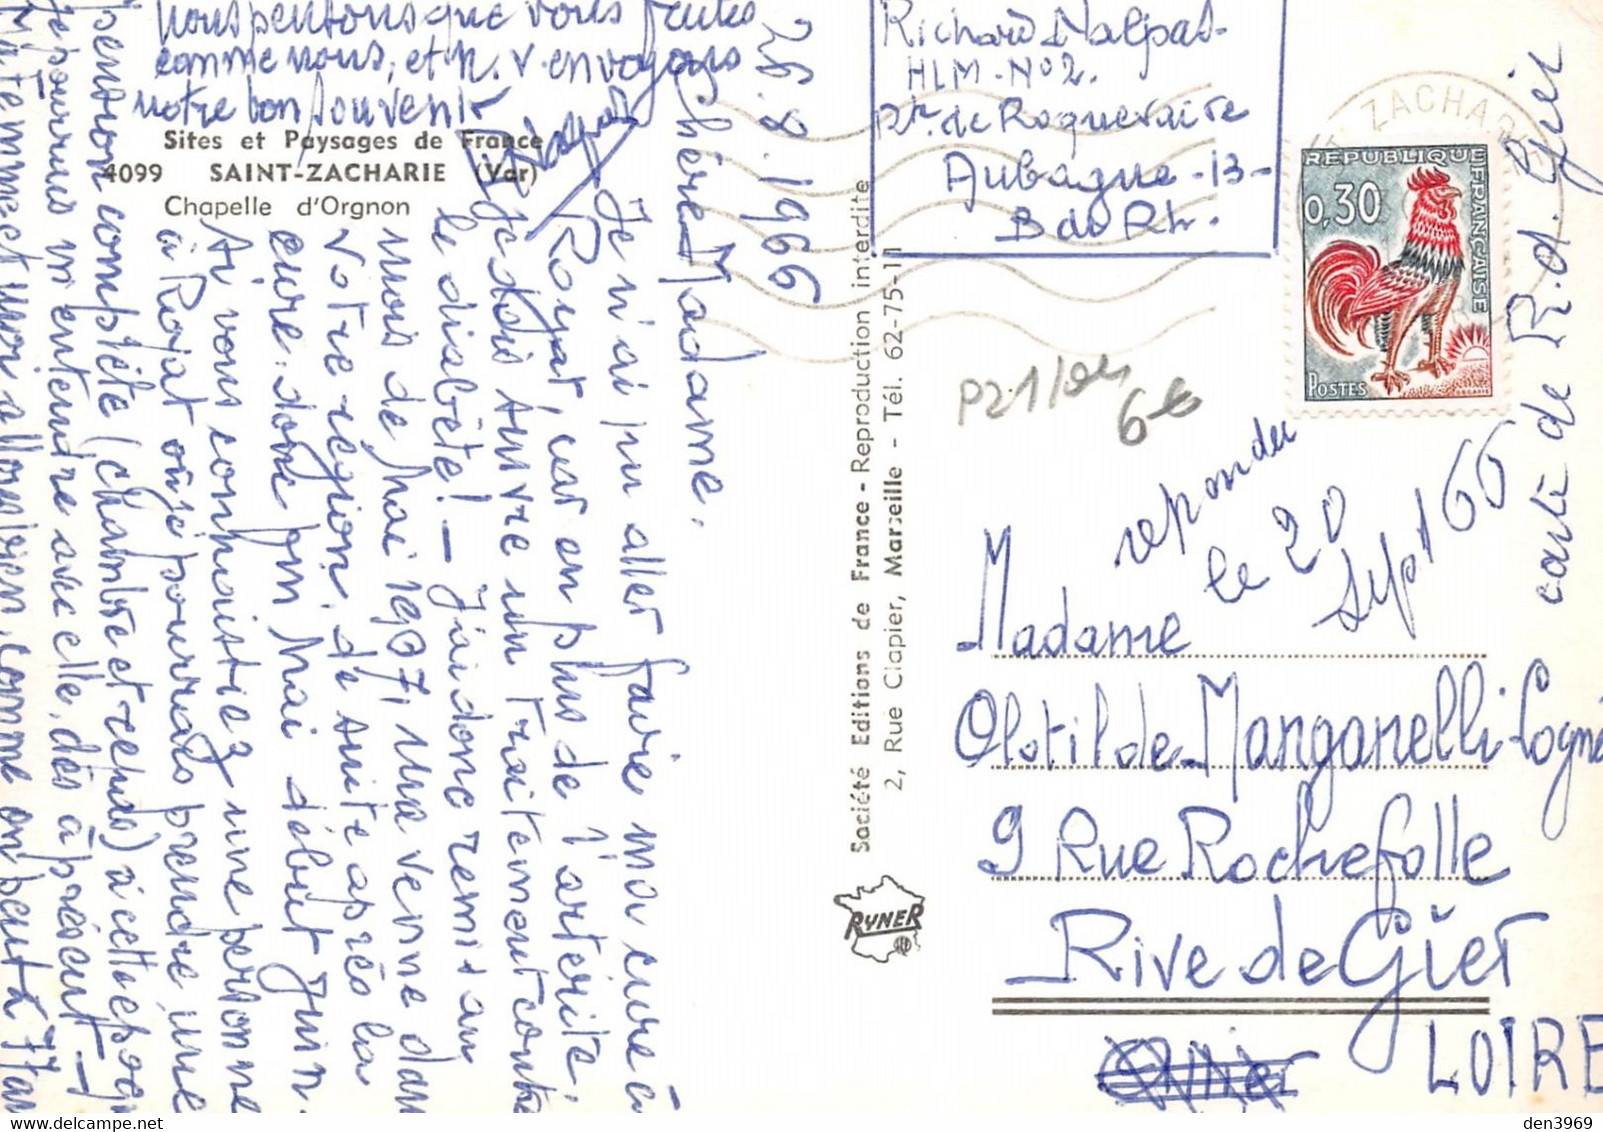 26.8.1966
Chère Madame.
Je n'ai pu aller faire ma cure à
Royat, car en plus de l'artérite,
je dois suivre un traitement contre
le diabète! - J'ai donc remis au
mois de Mai 1967, ma venue dans
votre région, de suite après la
cure: donc fin Mai début Juin.
Si vous connaissiez une personne
à Royat où je pourrais prendre une
pension complète (chambre et repas) à cette époque
je pourrais m'entendre avec elle, dès à présent -
allons bien, comme on peut à 77 ans
Nous pensons que vous faites
comme nous, et n. v. envoyons
notre bon souvenir
Sites et Paysages de France
4099 SAINT-ZACHARIE (Var)
Chapelle d'Orgnon
Société Editions de France - Reproduction interdite
2, Rue Clapier, Marseille - Tél. 62-75-11
RYNER
Richard Malpat
HLM-N°2.
Rte. de Roquevaire
Aubagne -13-
B du Rh.
ST ZACHARIE
REPUBLIQUE FRANÇAISE
0,30
POSTES
DECARIS
P21/04
6€
repondu
le 20
Sept 66
carte de R.d. Gier
Madame
Clotilde Manganelli-Cogne
9 Rue Rochefolle
Rive de Gier
LOIRE
delcampe.net
den3969